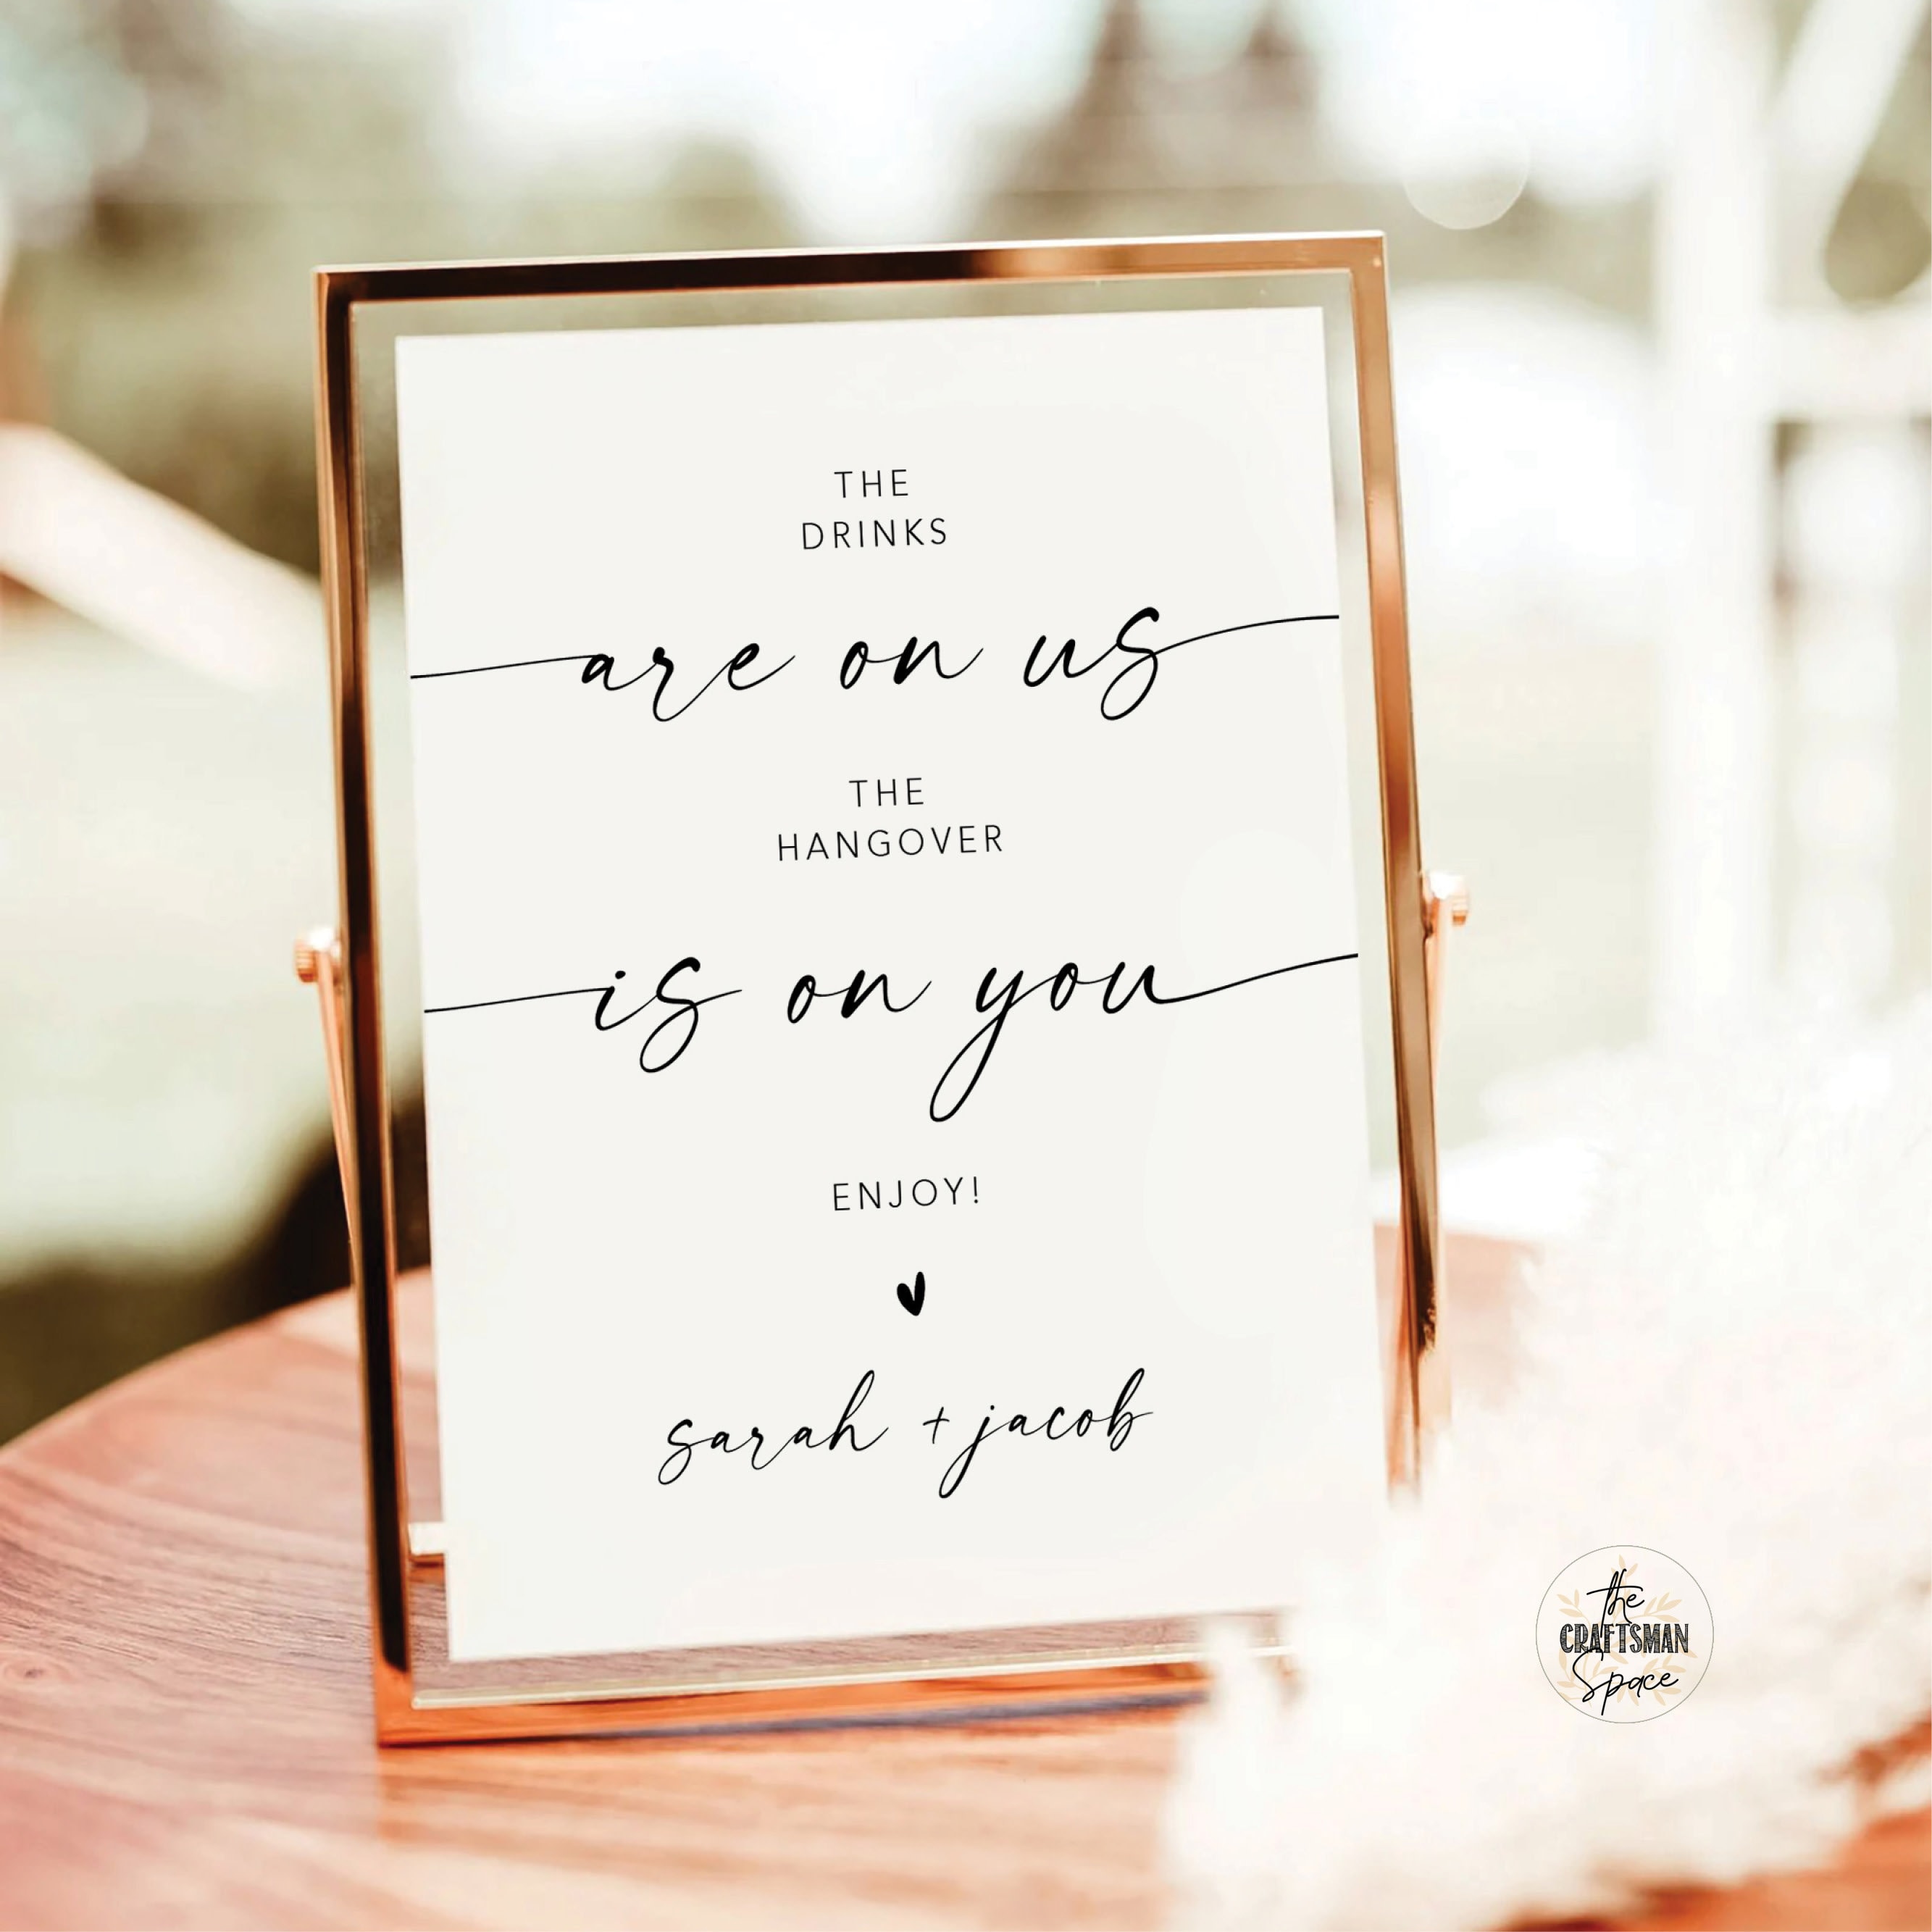 THE
DRINKS
are on us
THE
HANGOVER
is on you
ENJOY!
sarah + jacob
the
CRAFTSMAN
Space